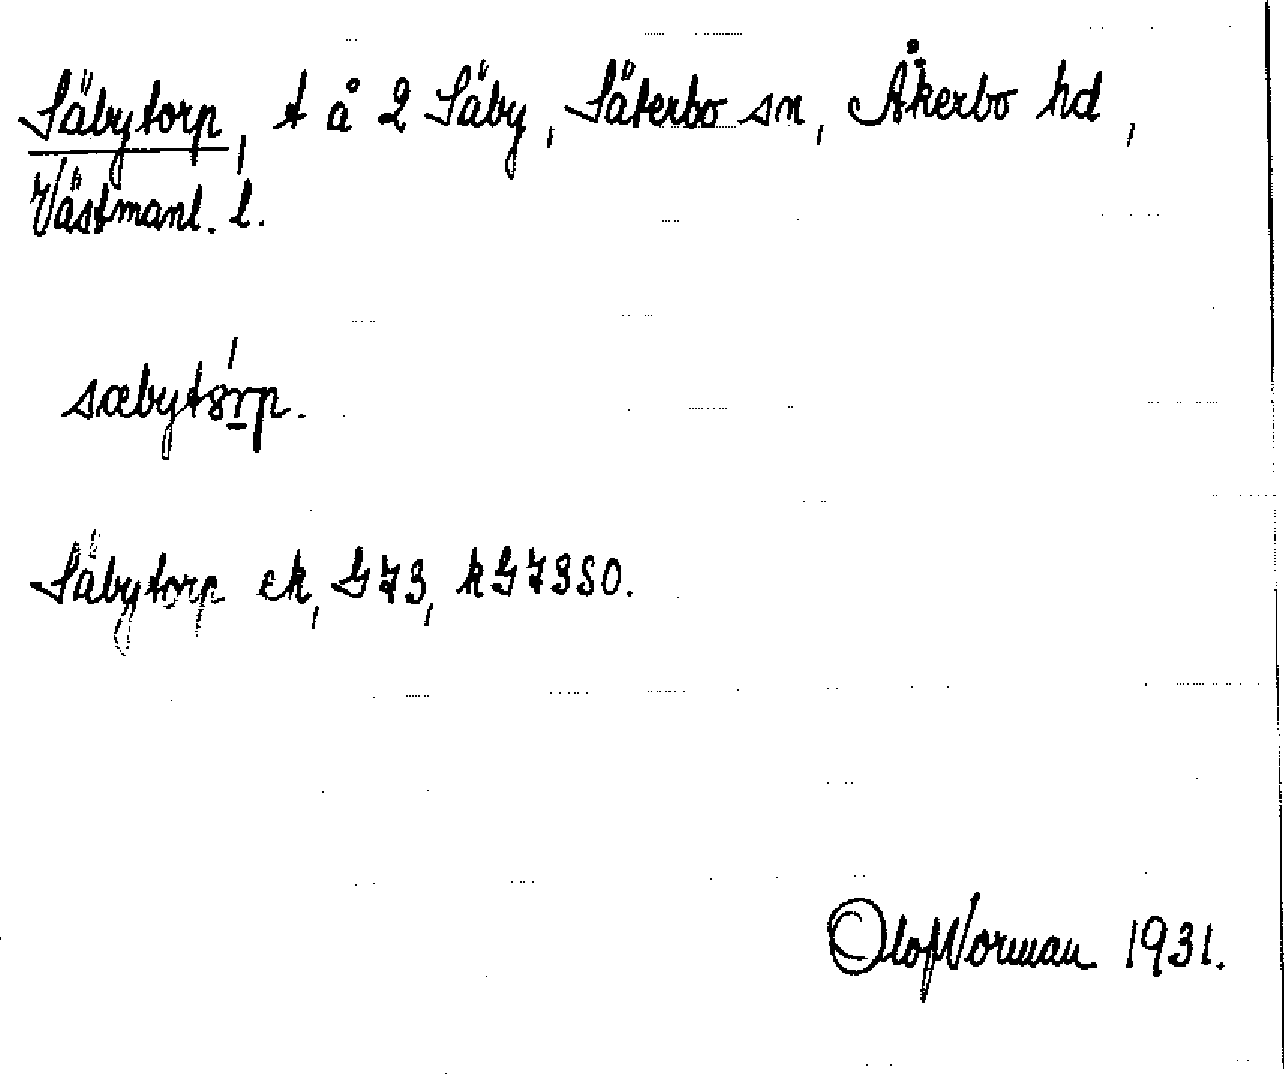 Säbytorp, t å 2 Säby, Säterbo sn, Åkerbo hd,
Västmanl. l.
Säbytorp ek, G73, kG7350.
Olof Norman 1931.